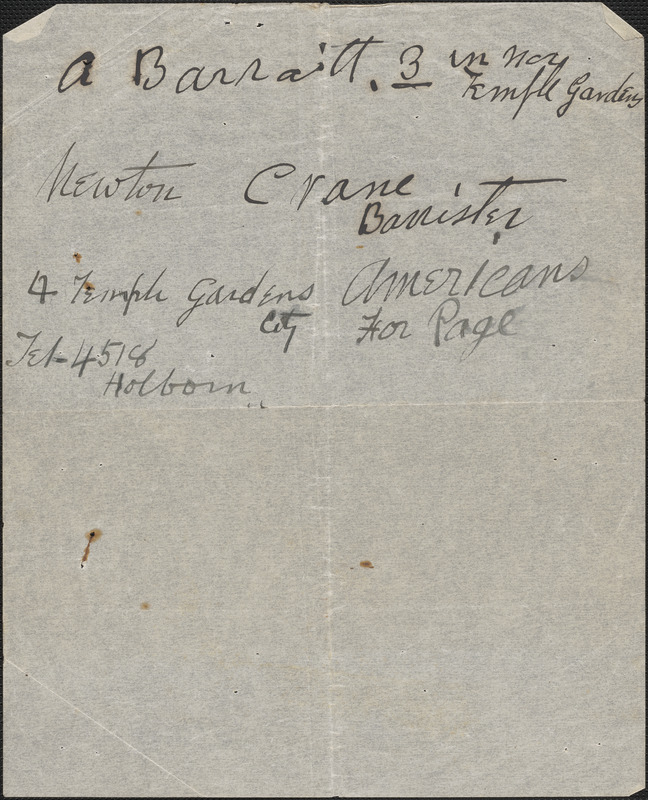 A Barratt. 3 in
Temple Gardens
Newton Crane,
Barrister
4 Temple Gardens
City
Americans
For Page
Tel - 4518
Holborn